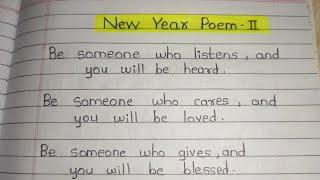 New Year Poem-II
Be someone who listens, and
you will be heard.
Be someone who cares, and
you will be loved.
Be someone who gives, and
you will be blessed.